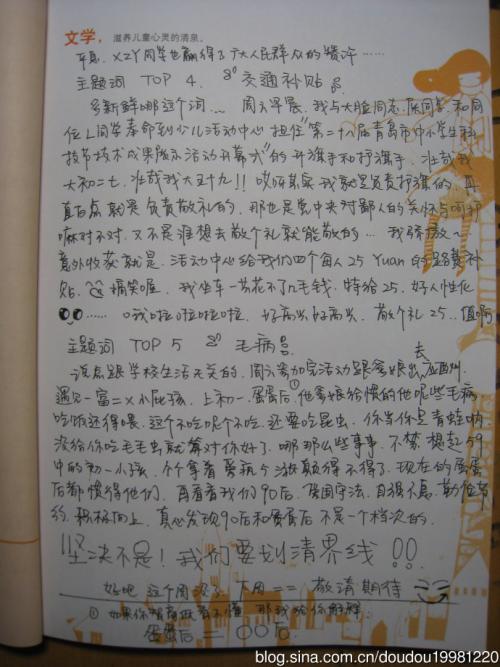 文学，滋养儿童心灵的清泉。
平息，XZY同学也赢得了广大人民群众的赞许……
主题词 TOP 4. 交通补贴
多新鲜哪这个词… 周六早晨，我与大脸同志、 同 和同
位L同学奉命到少儿活动中心担任“第二十八届青岛市中小学生科
技节技术成果展示活动开幕式”的升旗手和护旗手，准哉我
大初二七，准哉我大五十九!! 哎呀其实我就是负责护旗的，再
直白点就是负责敬礼的，那也是党中央对鄙人的关怀与呵护
嘛对不对，又不是谁想去敬个礼就能敬的… 我骄傲~
意外收获就是，活动中心给我们四个每人25 Yuan的路费补
贴， 搞笑喔，我坐车一共花不了几毛钱，特给25，好人性化
…… 啦啦啦啦，好高兴好高兴，敬个礼25，值啊
主题词 TOP 5 毛病
说点跟学校生活无关的，周六参加完活动跟爹娘出去
遇见一富二X小屁孩，上初一，蛋蛋后①，他爹娘给惯的他呢些毛病
吃饭还得喂，这个不吃呢个不吃，还要吃昆虫，你当你是青蛙呐
没给你吃毛毛虫就算对你好了，哪那么些事事，不禁想起59
中的初一小孩，个个拿着 得不得了，现在的蛋蛋
后都惯得他们，再看看我们90后，遵国守法，自强不息，勤俭节
约，积极向上，真心发现90后和蛋蛋后不是一个档次的，
坚决不是！我们要划清界线!!
好吧 这个周没了 下周== 敬请期待
① 如果你 看不懂 那我给你解释：
蛋蛋后 = 00后.
blog.sina.com.cn/doudou19981220